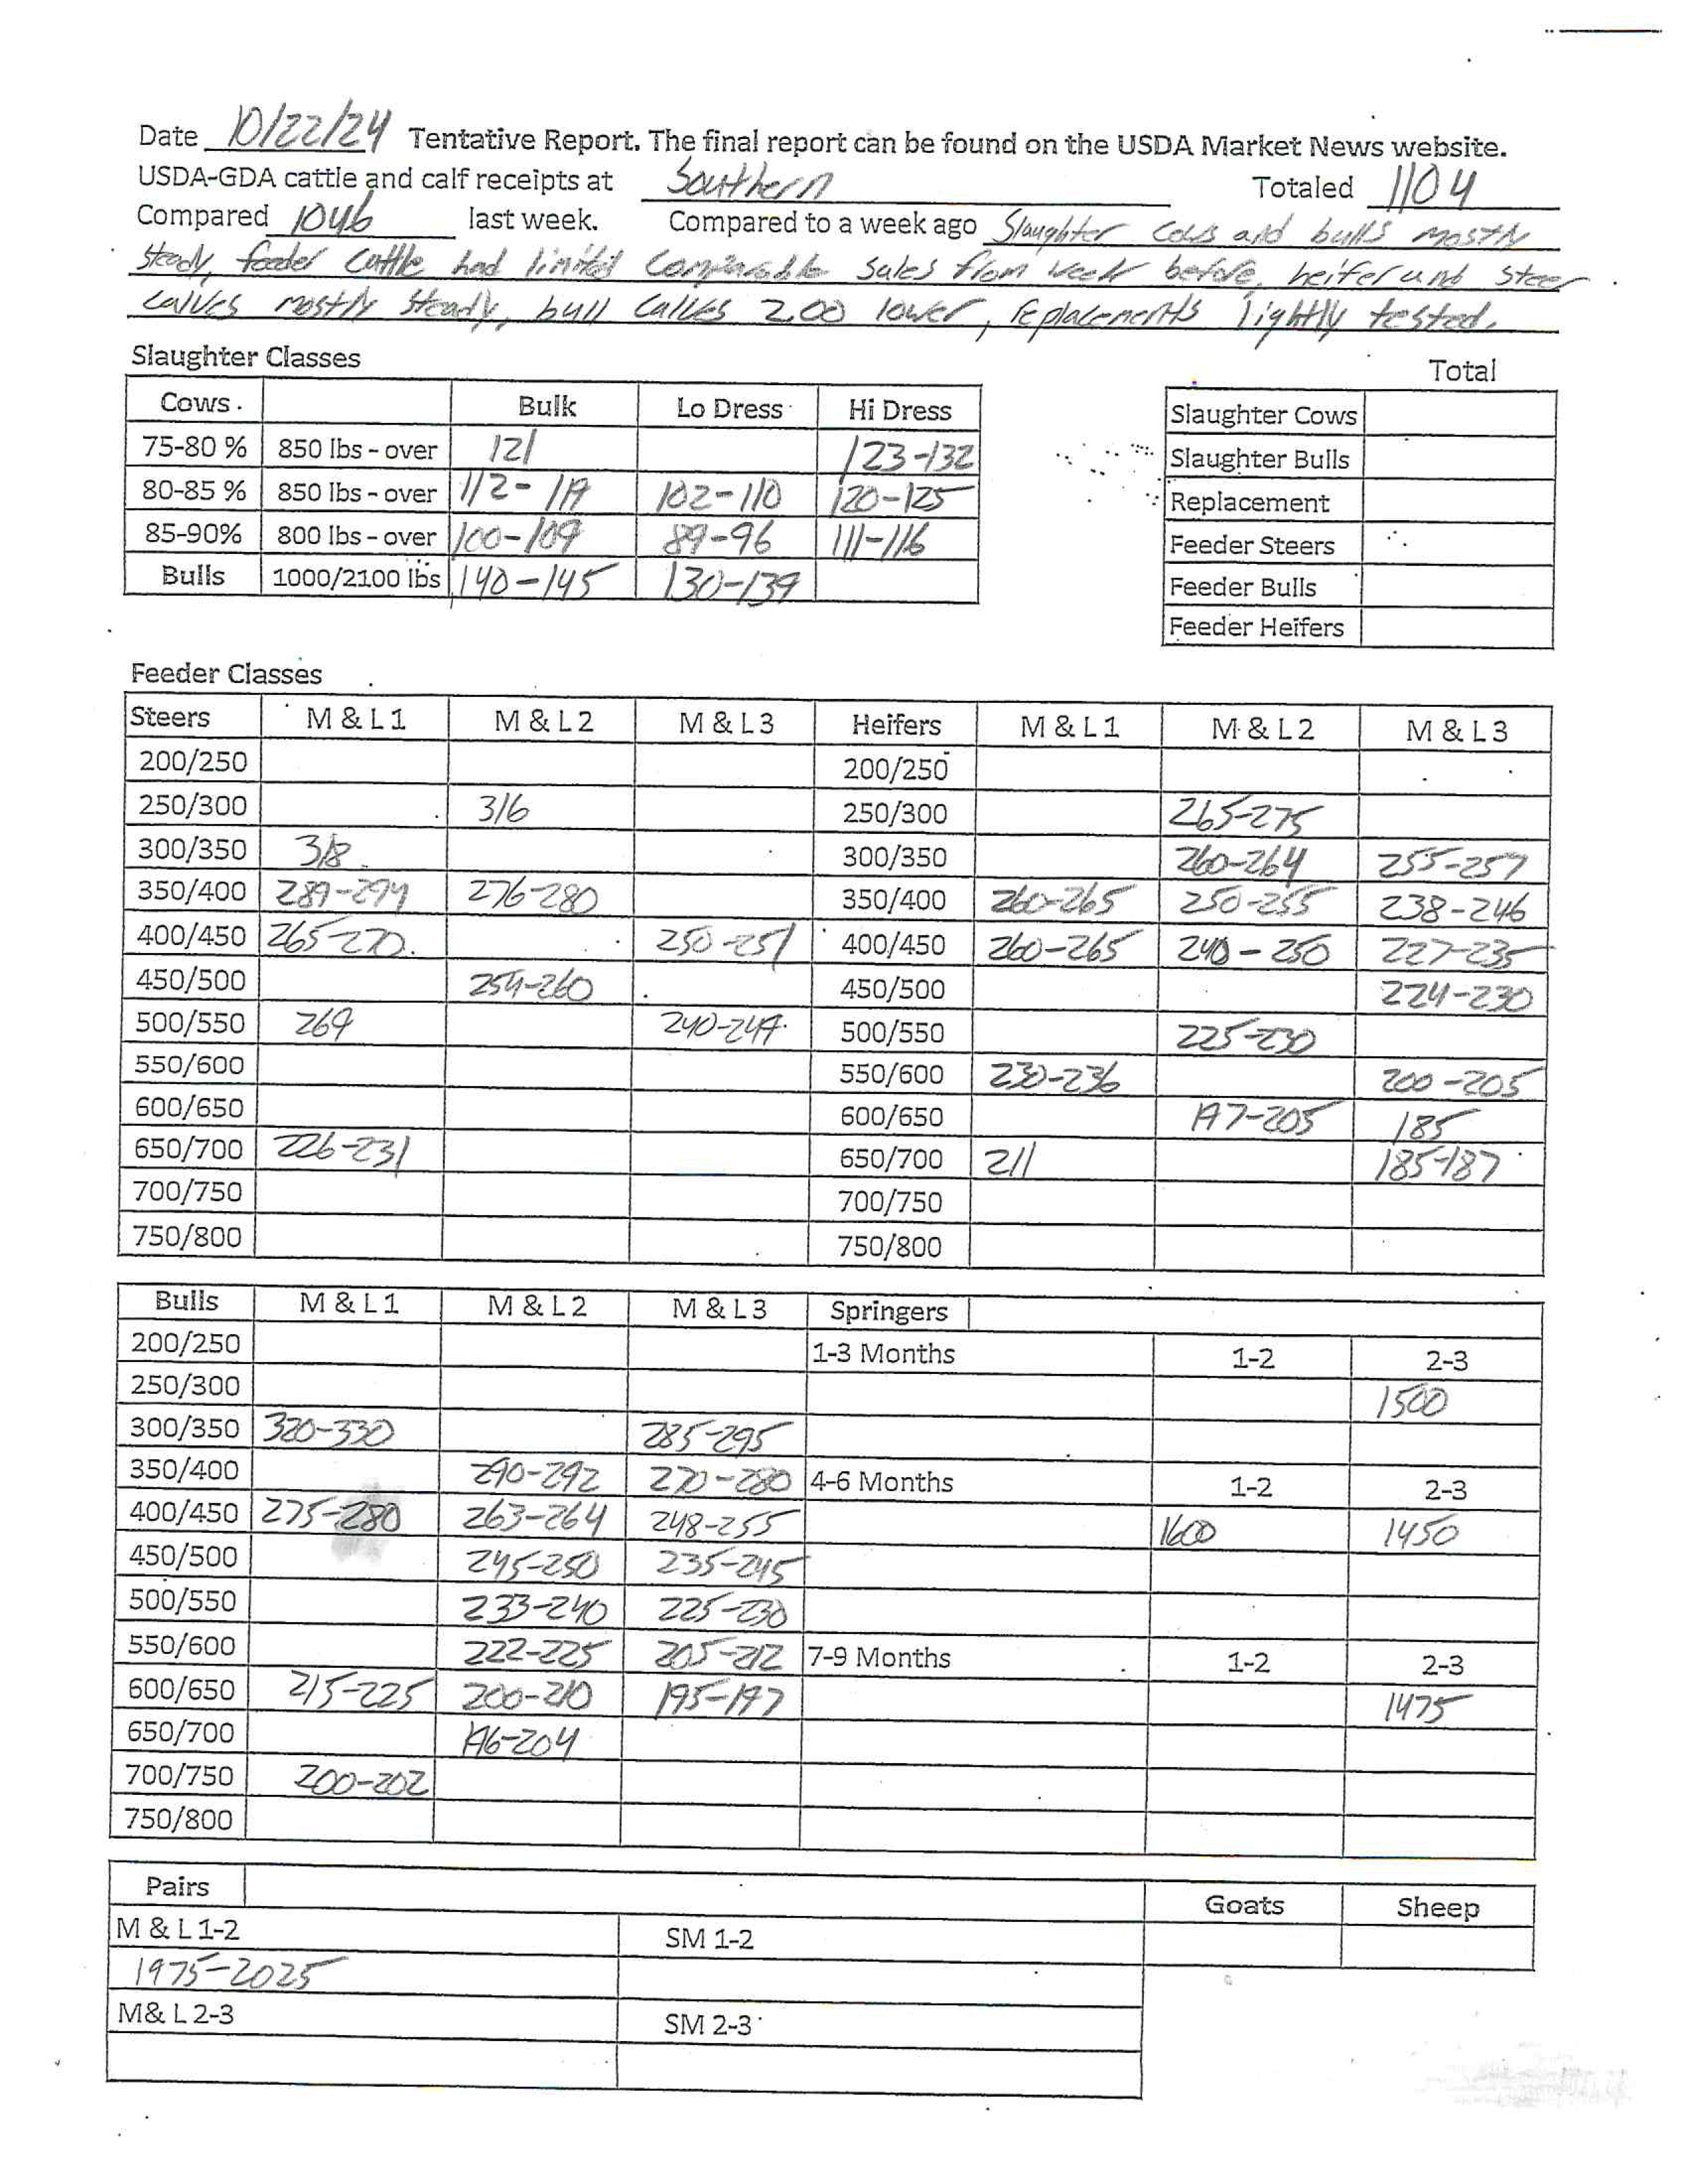 Date 10/22/24 Tentative Report. The final report can be found on the USDA Market News website.
USDA-GDA cattle and calf receipts at Southern Totaled 1104
Compared 1046 last week. Compared to a week ago Slaughter cows and bulls mostly
steady, feeder cattle had limited comparable sales from week before, heifer and steer
calves mostly steady, bull calves 2.00 lower, replacements lightly tested.
Slaughter Classes Total
Cows Bulk Lo Dress Hi Dress
75-80 % 850 lbs - over 121 123-132
80-85 % 850 lbs - over 112-119 102-110 120-125
85-90% 800 lbs - over 100-109 89-96 111-116
Bulls 1000/2100 lbs 140-145 130-139
Slaughter Cows
Slaughter Bulls
Replacement
Feeder Steers
Feeder Bulls
Feeder Heifers
Feeder Classes
Steers M & L 1 M & L 2 M & L 3 Heifers M & L 1 M & L 2 M & L 3
200/250 200/250
250/300 316 250/300 265-275
300/350 318 300/350 260-264 255-257
350/400 289-294 276-280 350/400 260-265 250-255 238-246
400/450 265-270 250-251 400/450 260-265 240-250 227-235
450/500 254-260 450/500 224-230
500/550 269 240-249 500/550 225-230
550/600 550/600 230-236 200-205
600/650 600/650 197-205 185
650/700 226-231 650/700 211 185-187
700/750 700/750
750/800 750/800
Bulls M & L 1 M & L 2 M & L 3 Springers
200/250 1-3 Months 1-2 2-3
250/300 1500
300/350 320-330 285-295
350/400 290-292 270-280 4-6 Months 1-2 2-3
400/450 275-280 263-264 248-255 1600 1450
450/500 245-250 235-245
500/550 233-240 225-230
550/600 222-225 205-212 7-9 Months 1-2 2-3
600/650 215-225 200-210 195-197 1475
650/700 196-204
700/750 200-202
750/800
Pairs Goats Sheep
M & L 1-2 SM 1-2
1975-2025
M& L 2-3 SM 2-3